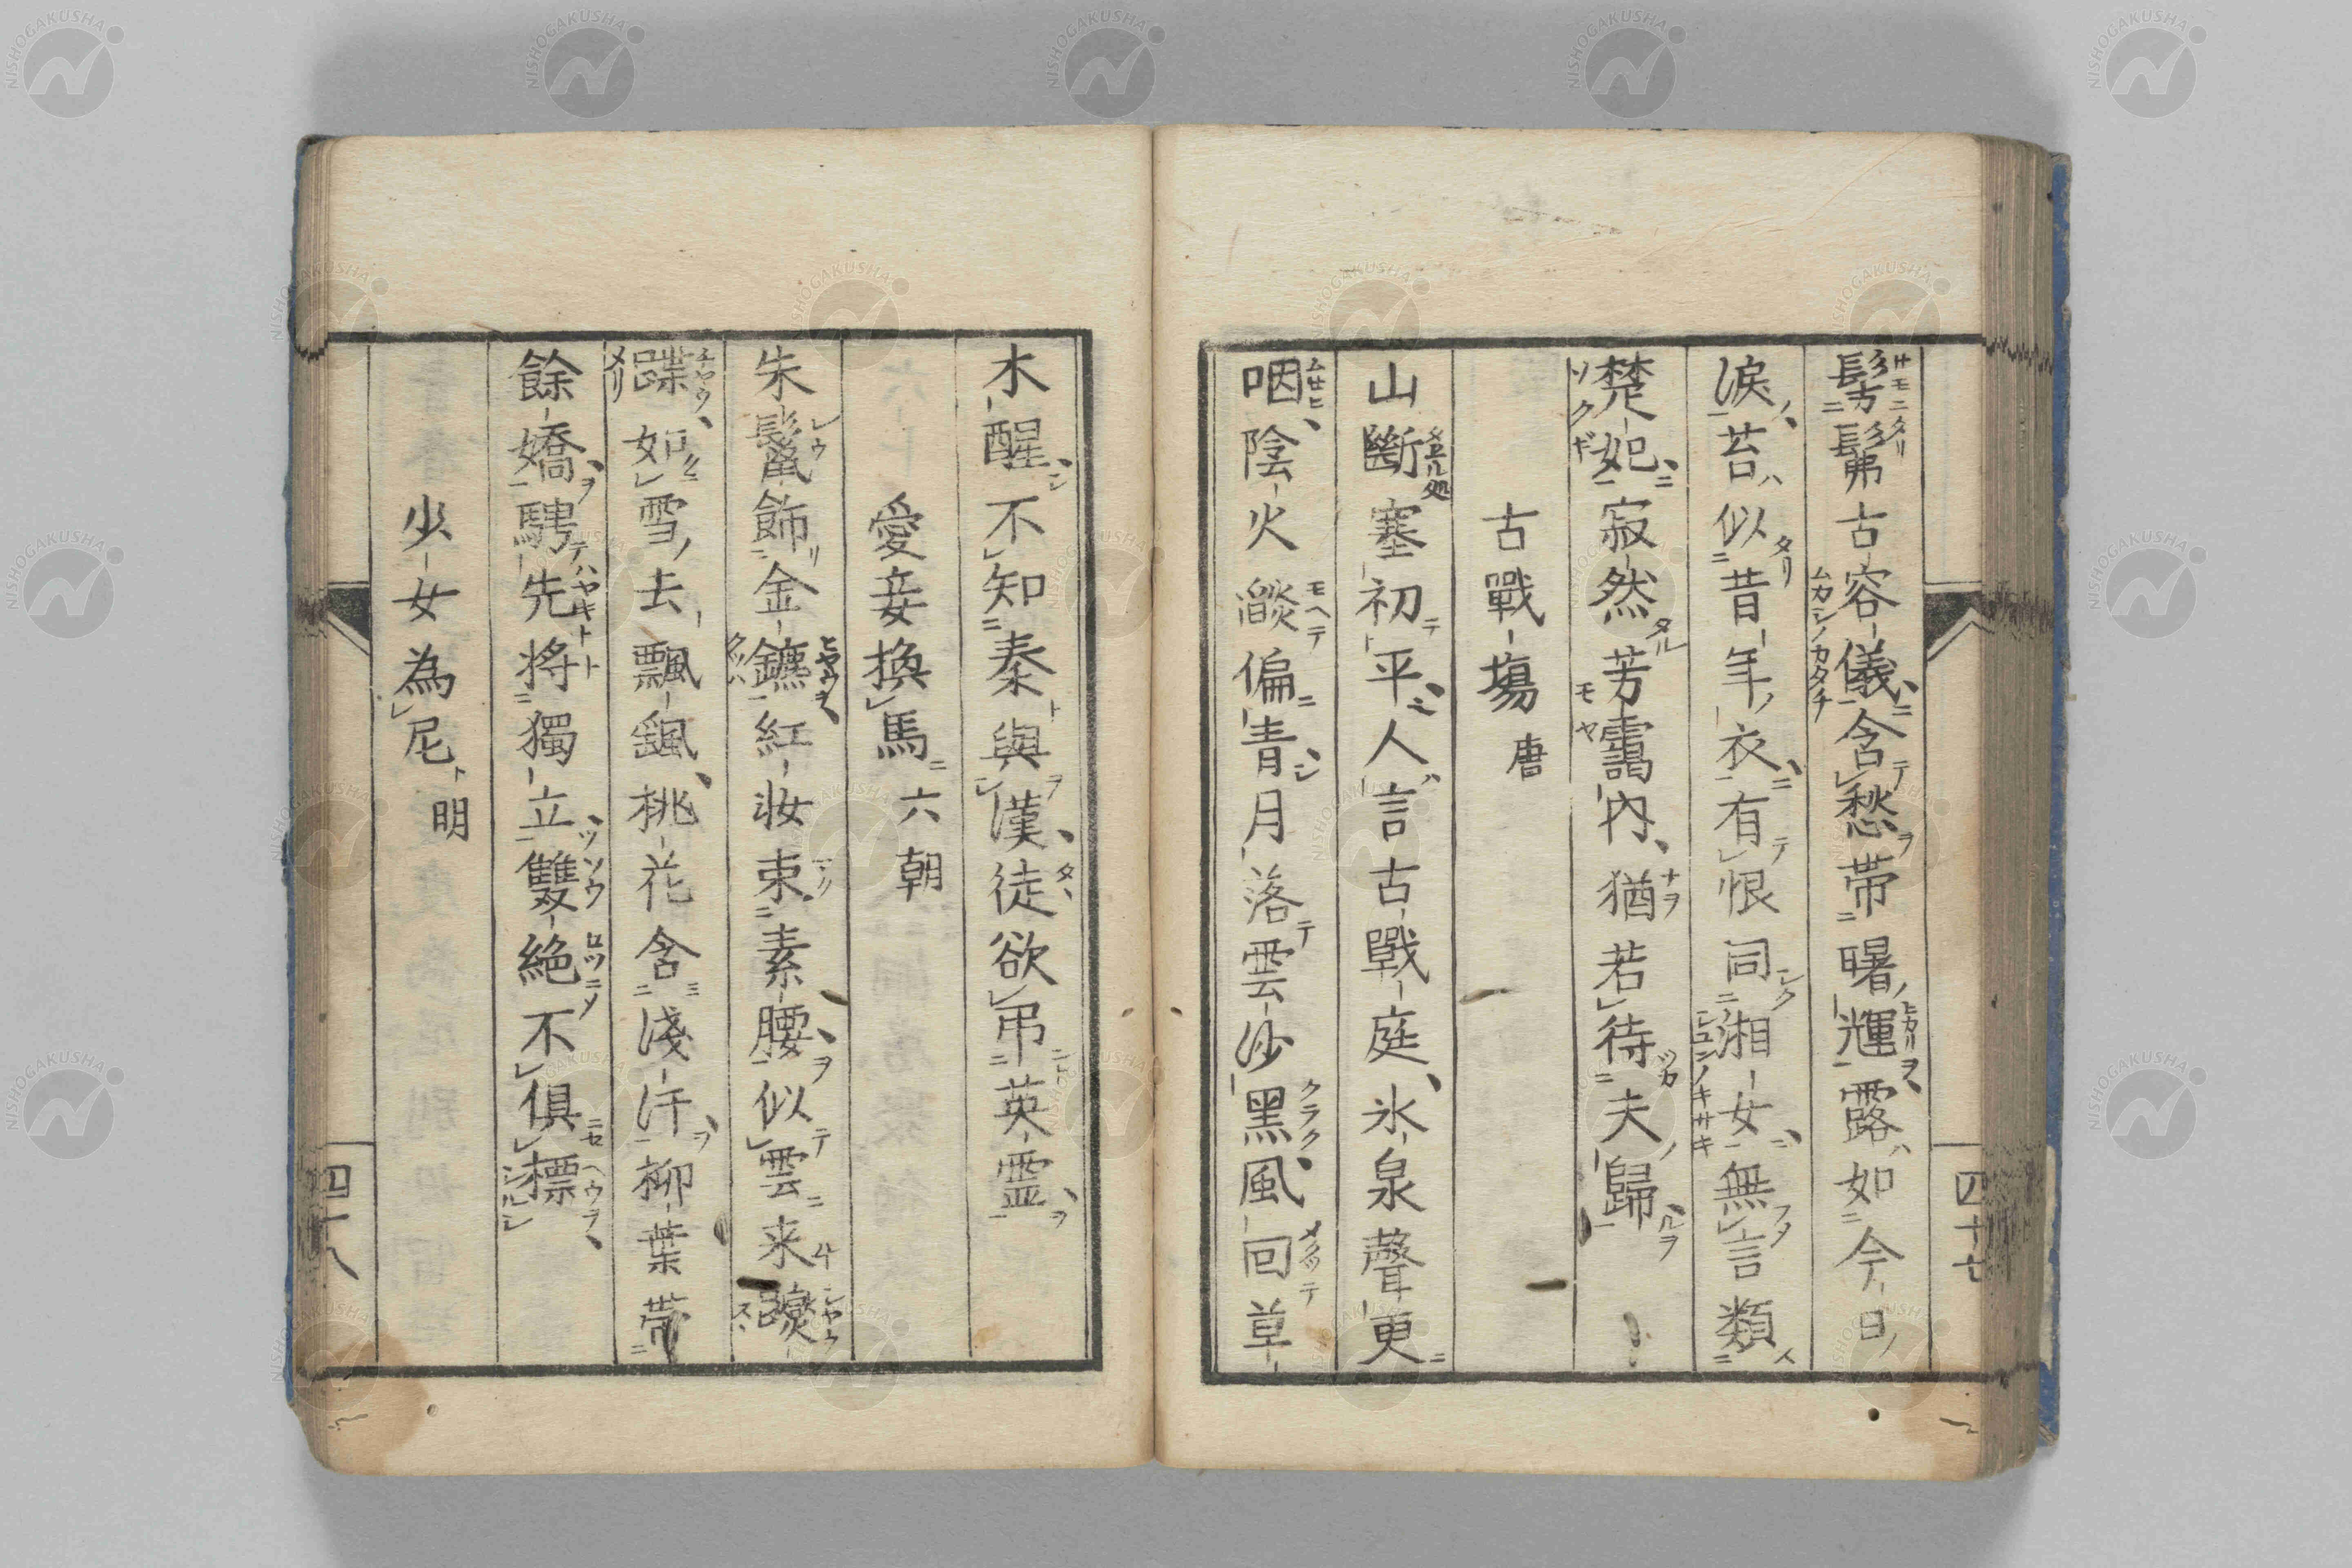 髣髴古容儀含愁帶曙輝露如今日
淚苔似昔年衣有恨同湘女無言類
楚妃寂然芳靄內猶若待夫歸
古戰場 唐
山斷塞初平人言古戰庭氷泉聲更
咽陰火燄偏青月落雲沙黑風回草
四十七
木醒不知秦與漢徒欲吊英霊
愛妾換馬 六朝
朱鬣飾金鑣紅妝束素腰似雲来躞
蹀如雪去飄颻桃花含淺汗柳葉帯
餘嬌騁先将獨立雙絶不俱標
少女為尼 明
四十八
NISHOGAKUSHA